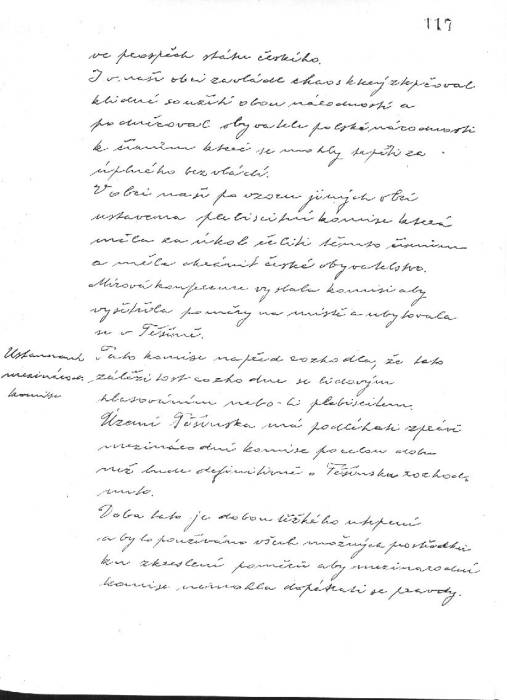 117
ve prospěch státu českého.
I v naší obci zavládl chaos který zkpčoval
klidné soužití obou národností a
podněcoval obyvatele polské národnosti
k činům které se mohly zpíti za
úplného bezvládí.
V obci naší po vzoru jiných obcí
ustavena plebiscitní komise která
měla za úkol čeliti těmto činům
a měla chránit české obyvatelstvo.
Mírová konference vyslala komisi aby
vyšetřila poměry na místě a ubytovala
se v Těšíně.
Ustanovení
mezinárod.
komise
Tato komise napřed rozhodla, že tato
záležitost rozhodne se lidovým
hlasováním nebo-li plebiscitem.
Území Těšínska má podléhati zprávě
mezinárodní komise po celou dobu
než bude definitivně o Těšínsku rozhod-
nuto.
Doba tato je dobou těžkého utrpení
a bylo používáno všech možných prostředků
ku zkreslení poměrů aby mezinárodní
komise nemohla dopátrati se pravdy.